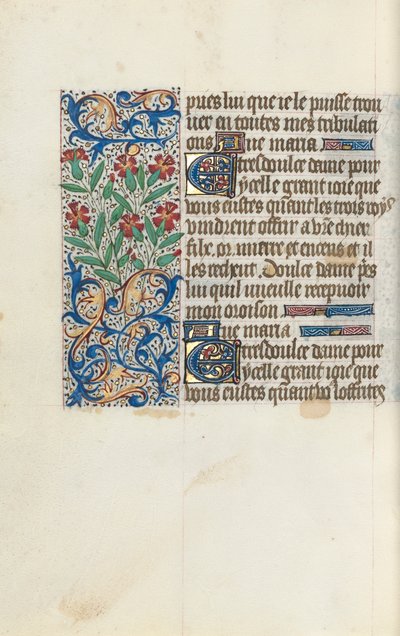 pues lui que ie le puisse trou
uer en toutes mes tribulati
ons Aue maria
E tresdoulce dame pour
ycelle grant ioie que
uous eustes quant les trois roys
uindrent offrir a vre chier
filz. or. mierre et encens et il
les recheut. Doulce dame pes
lui quil vueille recepuoir
mon oroison
Aue maria
E tresdoulce dame pour
ycelle grant ioie que
uous eustes quant vous loffrites